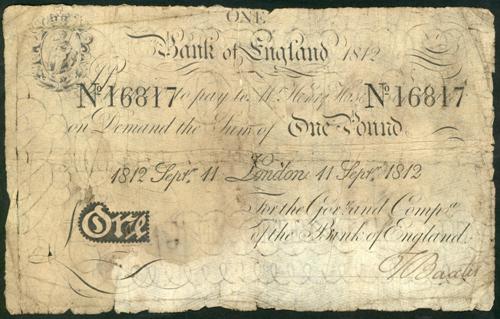 ONE
Bank of England 1812
No 16817 to pay to Mr. Henry Hase No 16817
on Demand the Sum of One Pound
1812 Sepr. 11 London 11 Sepr. 1812
For the Govr. and Compa.
of the Bank of England.
One
Baxter